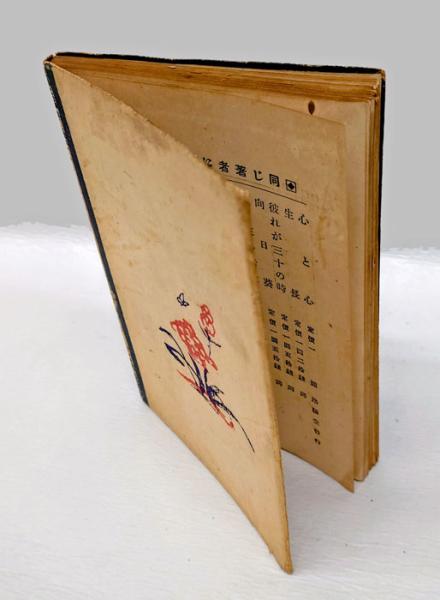 同じ著者
心と心 定價一圓
生長 定價一圓二拾錢 同
彼れが三十の時 定價一圓五拾錢 同
向日葵 定價一圓五拾錢 同